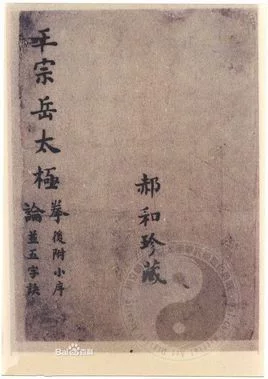 王宗岳太極
拳論
後附小序
並五字訣
郝和珍藏
Bai百科